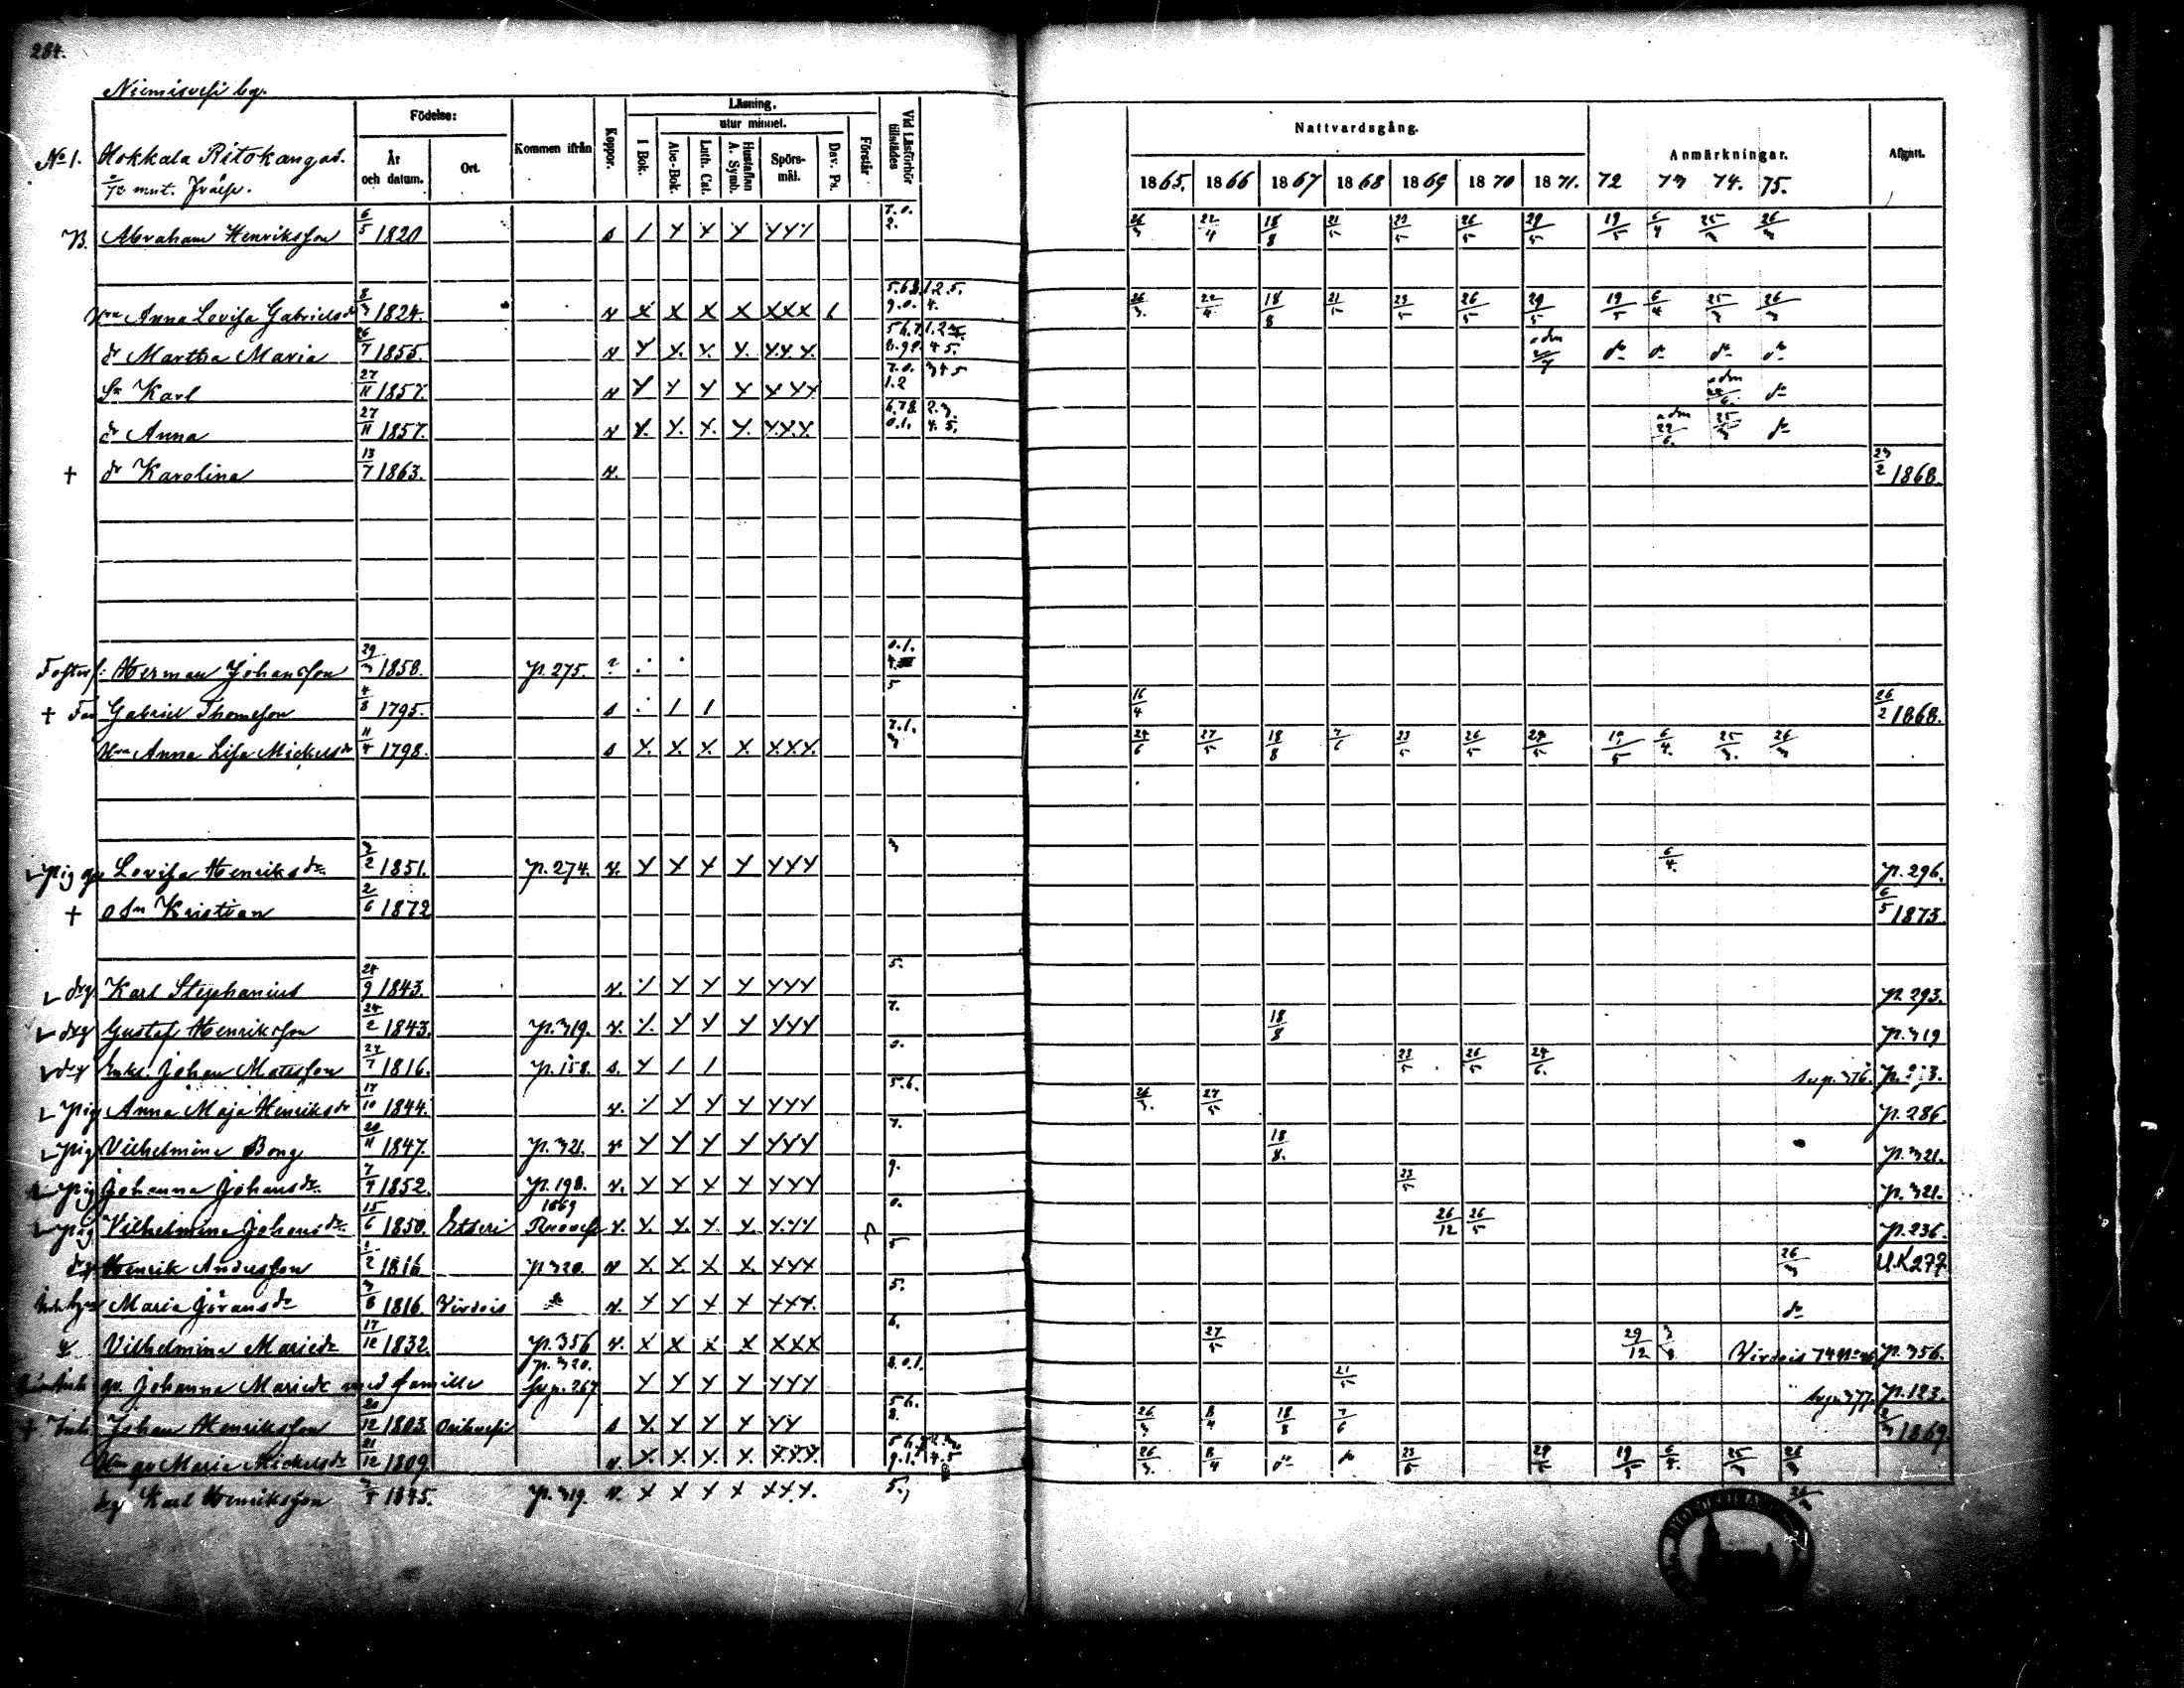 284.
Niemisvesi by.
Födelse: Läsning. Nattvardsgång.
utur minnet.
No 1. Hokkala Ritokangas. År och datum. Ort. Kommen ifrån Koppor. I Bok. Abc-Bok. Luth. Cat. Hustaflan A. Symb. Spörsmål. Dav. Ps. Förstår Vid Läsförhör tillstädes Anmärkningar. Afgått.
mnt.
1865. 1866 1867 1868 1869 1870 1871. 72 73 74. 75.
B. Abraham Henriksson 6/5 1820 s 1 Y X Y YYY 7.0. 2. 26/3 22/4 18/8 21/5 23/5 26/5 29/5 19/5 6/4 25/3 26/3
Hru Anna Lovisa Gabrielsdr 8/3 1824. v X X X X XXX 1 5.6.8. 1.2.5. 9.0. 4. 26/3 22/4 18/8 21/5 23/5 26/5 29/5 19/5 6/4 25/3 26/3
dr Martha Maria 26/7 1855. v Y Y. Y. Y. Y.Y.Y. 4 5. adm do do do do
Sn Karl 27/11 1857. v Y Y Y Y YYY 7.0. 3 4 5 1.2 adm do
dr Anna 27/11 1857. v Y. Y. Y. Y. Y.Y.Y. 6.7.8. 2.3. 0.1. 4.5. adm 22/6. 25/3 do
† dr Karolina 13/7 1863. v. 23/2 1868.
Fosters: Herman Johansson 29/3 1858. p. 275. ? 0.1. 5
† Far Gabriel Thomsson 4/8 1795. s 1 1 16/4 26/2 1868.
Hru Anna Lisa Mickelsdr 11/4 1798. s X. X. X. X. X.X.X. 7.1. 3 24/6 27/5 18/8 7/6 23/5 26/5 29/5 19/5 6/4. 25/3. 26/3
Pig qv Lovisa Henriksdr 3/2 1851. p. 274. v. Y Y Y Y YYY 3 6/4. p. 296.
† o Sn Kristian 2/6 1872 6/5 1873.
drg. Karl Stephanius 24/9 1843. v. Y Y Y Y YYY 5. p. 293.
drg Gustaf Henriksson 24/2 1843. p. 319. v. Y. Y Y Y YYY 7. 18/8 p. 319
drg Enkl. Johan Matsson 27/7 1816. p. 158. s. Y 1 1 0. 23/5 26/5 24/6.
Pig Anna Maja Henriksdr 17/10 1844. v. Y Y Y Y YYY 5.6. 26/3. 27/5 p. 286.
Pig Vilhelmina Bong 20/11 1847. p. 321. v Y Y Y Y YYY 7. 18/8. p. 321.
Pig Johanna Johansdr. 7/4 1852. p. 198. v. Y Y Y Y YYY 9. 23/5 p. 321.
Pig Vilhelmina Johansdr 15/6 1850. Etseri 1869 v. Y. Y. Y. Y. Y.YY 0. 26/12 26/5 p. 236.
drg Henrik Andersson 1/2 1816 p 320. v X. X. X. X. XXX 5 26/3 U.K 277.
Maria Göransdr 3/8 1816. Virdois do v. Y Y Y Y YYY. 5. do
Vilhelmina Mariedr 17/12 1832. p. 356 v. X X X X XXX 6. 27/5 29/12 3/8 Virdois 74 p. 356.
qv. Johanna Mariedr med familie p. 320. Y Y Y Y YYY 8.0.1. 21/5 p. 123.
† Inh. Johan Henriksson 20/12 1803. Orihvesi s Y. Y Y Y YY 5 6. 8. 26/3 8/4 18/8 7/6 2/3 1869.
Hru qv Maria Mickelsdr 21/12 1809. v. X. X. X. X. X.X.X. 26/3. 8/4 do do 23/5 29/5 19/5 6/4. 25/3 26/3
drg Karl Henriksson 3/5 1845. p. 319. v. X X X X XXX. 5.,